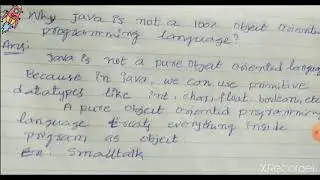 Why Java is not a 100% object oriented
programming language?
Ans: Java is not a pure object oriented language
Because in java, we can use primitive
datatypes like int, char, float, boolean, etc
A pure object oriented programming
language everything inside
program as object
Ex: Smalltalk
XRecorder